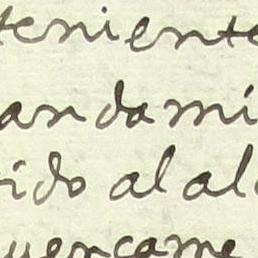 teniente
andami
ido al al
uencame